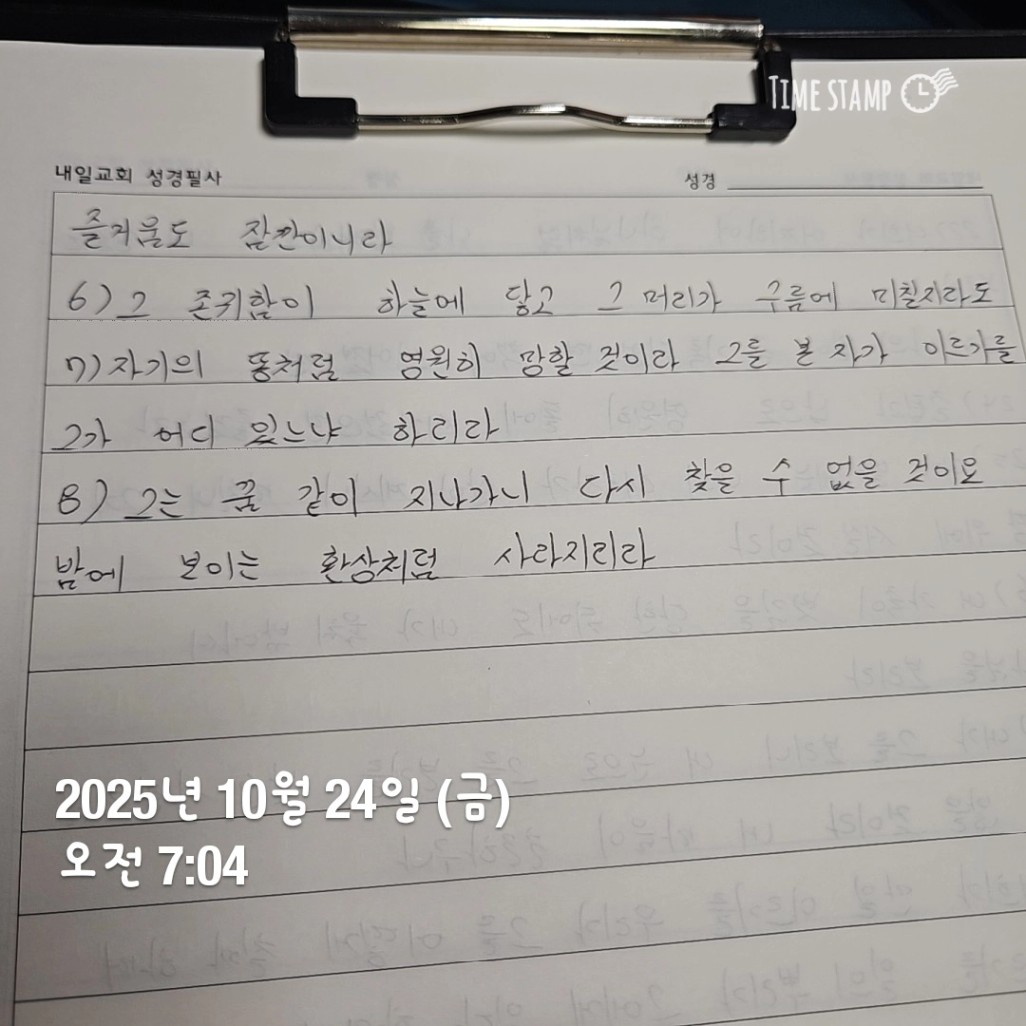 TIME STAMP
내일교회 성경필사 성경
즐거움도 잠깐이니라
6) 그 존귀함이 하늘에 닿고 그 머리가 구름에 미칠지라도
7) 자기의 똥처럼 영원히 망할 것이라 그를 본 자가 이르기를
그가 어디 있느냐 하리라
8) 그는 꿈 같이 지나가니 다시 찾을 수 없을 것이요
밤에 보이는 환상처럼 사라지리라
2025년 10월 24일 (금)
오전 7:04